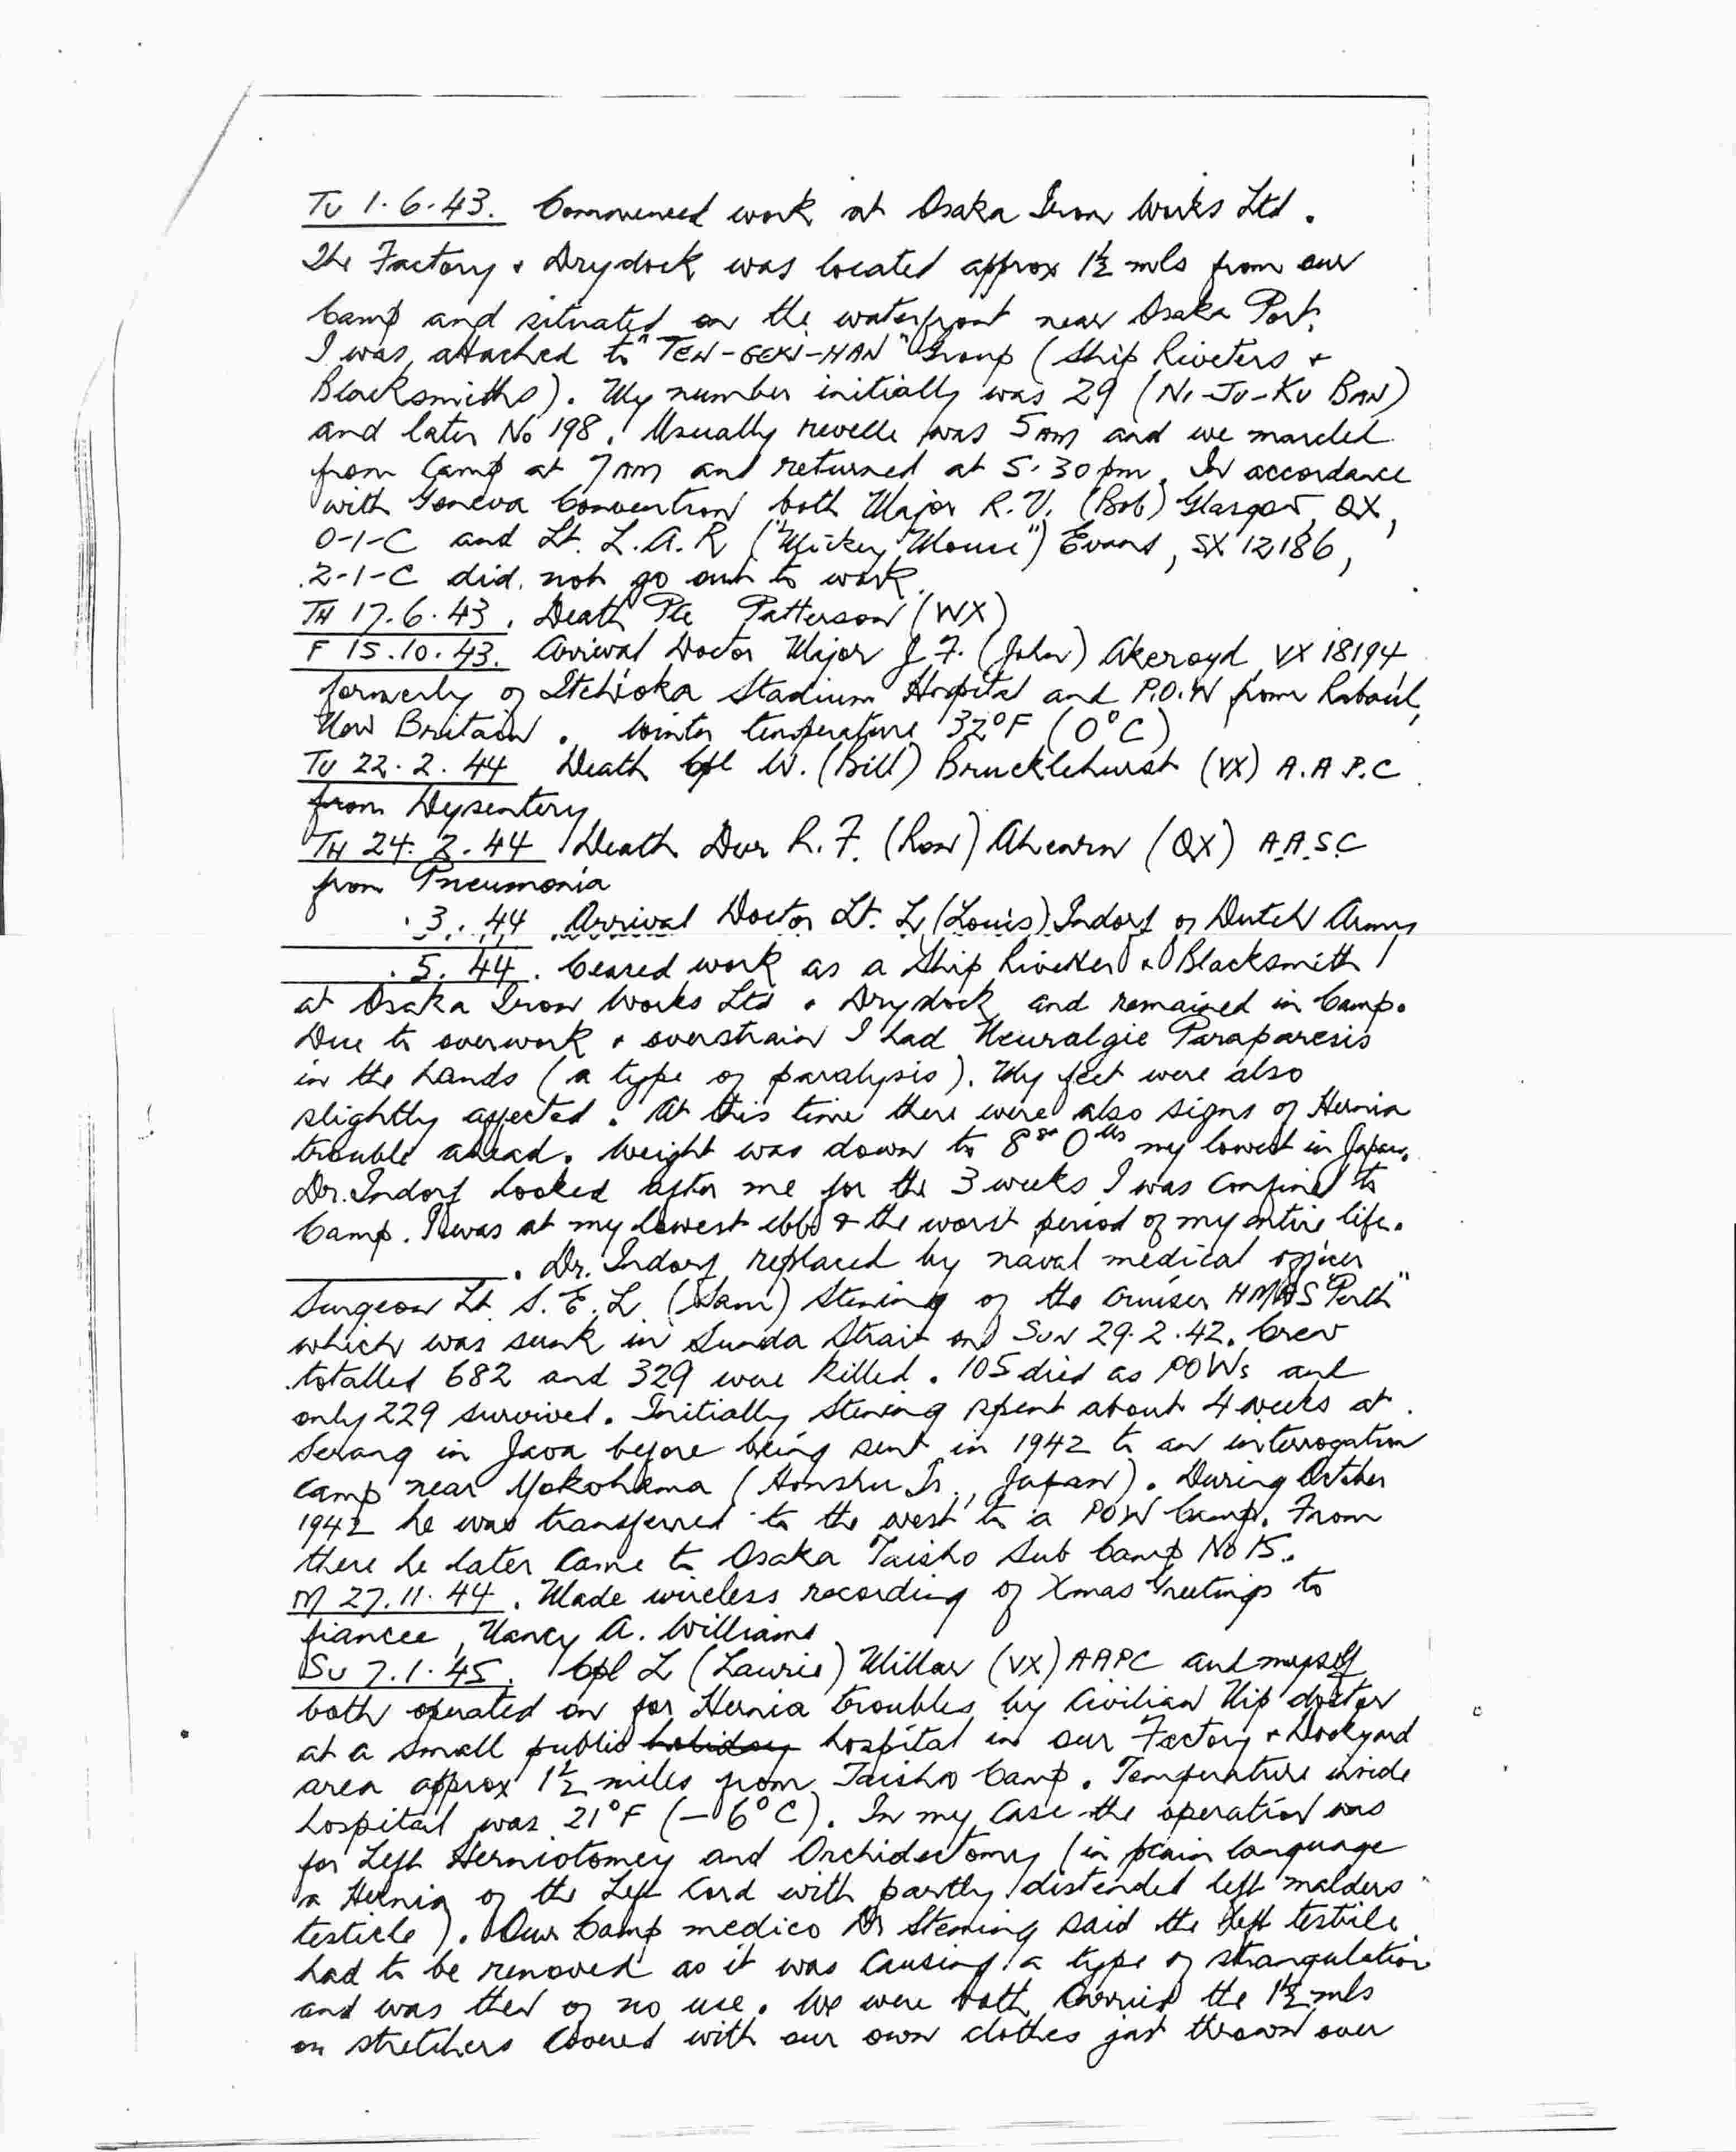 Tu 1.6.43. Commenced work at Osaka Iron Works Ltd.
The Factory & Drydock was located approx 1½ mls from our
Camp and situated on the waterfront near Osaka Port.
I was attached to "TEN-GEKI-HAN" Group (Ship Riveters &
Blacksmiths). My number initially was 29 (NI-JU-KU BAN)
and later No 198. Usually revelle was 5 AM and we marched
from Camp at 7 AM and returned at 5.30 pm. In accordance
with Geneva Convention both Major R.V. (Bob) Glasgow, QX,
O-I-C and Lt. L.A.R ("Mickey Mouse") Evans, SX 12186,
2-I-C did not go out to work.
TH 17.6.43. Death Pte Patterson (WX)
F 15.10.43. Arrival Doctor Major J F. (John) Akeroyd VX 18194
formerly of Itchioka Stadium Hospital and P.O.W from Rabaul,
New Britain. Winter temperature 32°F (0°C)
TU 22.2.44 Death Cpl W. (Bill) Brucklehurst (VX) A.A.P.C
from Dysentery
TH 24.2.44 Death Dvr R.F. (Ron) Ahearn (QX) A.A.S.C
from Pneumonia
.3.44 Arrival Doctor Lt. L (Louis) Indorf of Dutch Army
.5.44. Ceased work as a Ship Rivetter & Blacksmith
at Osaka Iron Works Ltd & Drydock and remained in Camp.
Due to overwork & overstrain I had Neuralgie Paraparesis
in the hands (a type of paralysis). My feet were also
slightly affected. At this time there were also signs of Hernia
trouble ahead. Weight was down to 8st 0lbs my lowest in Japan.
Dr. Indorf looked after me for the 3 weeks I was confined to
Camp. I was at my lowest ebb & the worst period of my entire life.
. Dr. Indorf replaced by naval medical officer
Surgeon Lt S.E.L (Sam) Stening of the cruiser HMAS "Perth"
which was sunk in Sunda Strait on SUN 29.2.42. Crew
totalled 682 and 329 were killed. 105 died as POWs and
only 229 survived. Initially Stening spent about 4 weeks at
Serang in Java before being sent in 1942 to an interrogation
camp near Yokohama (Honshu Is., Japan). During October
1942 he was transferred to the west to a POW Camp. From
there he later came to Osaka Taisho Sub Camp No 15.
M 27.11.44. Made wireless recording of Xmas Greetings to
fiancee, Nancy A. Williams
SU 7.1.45. Cpl L (Laurie) Millar (VX) AAPC and myself
both operated on for Hernia troubles by Civilian Nip doctor
at a small public holiday hospital in our Factory & Dockyard
area approx 1½ miles from Taisho Camp. Temperature inside
hospital was 21°F (-6°C). In my case the operation was
for Left Herniotomey and Orchidectomy (in plain language
a Hernia of the Left Cord with partly distended left
testicle). Our Camp medico Dr Stening said the left testicle
had to be removed as it was causing a type of strangulation
and was then of no use. We were both carried the 1½ mls
on stretchers covered with our own clothes just thrown over